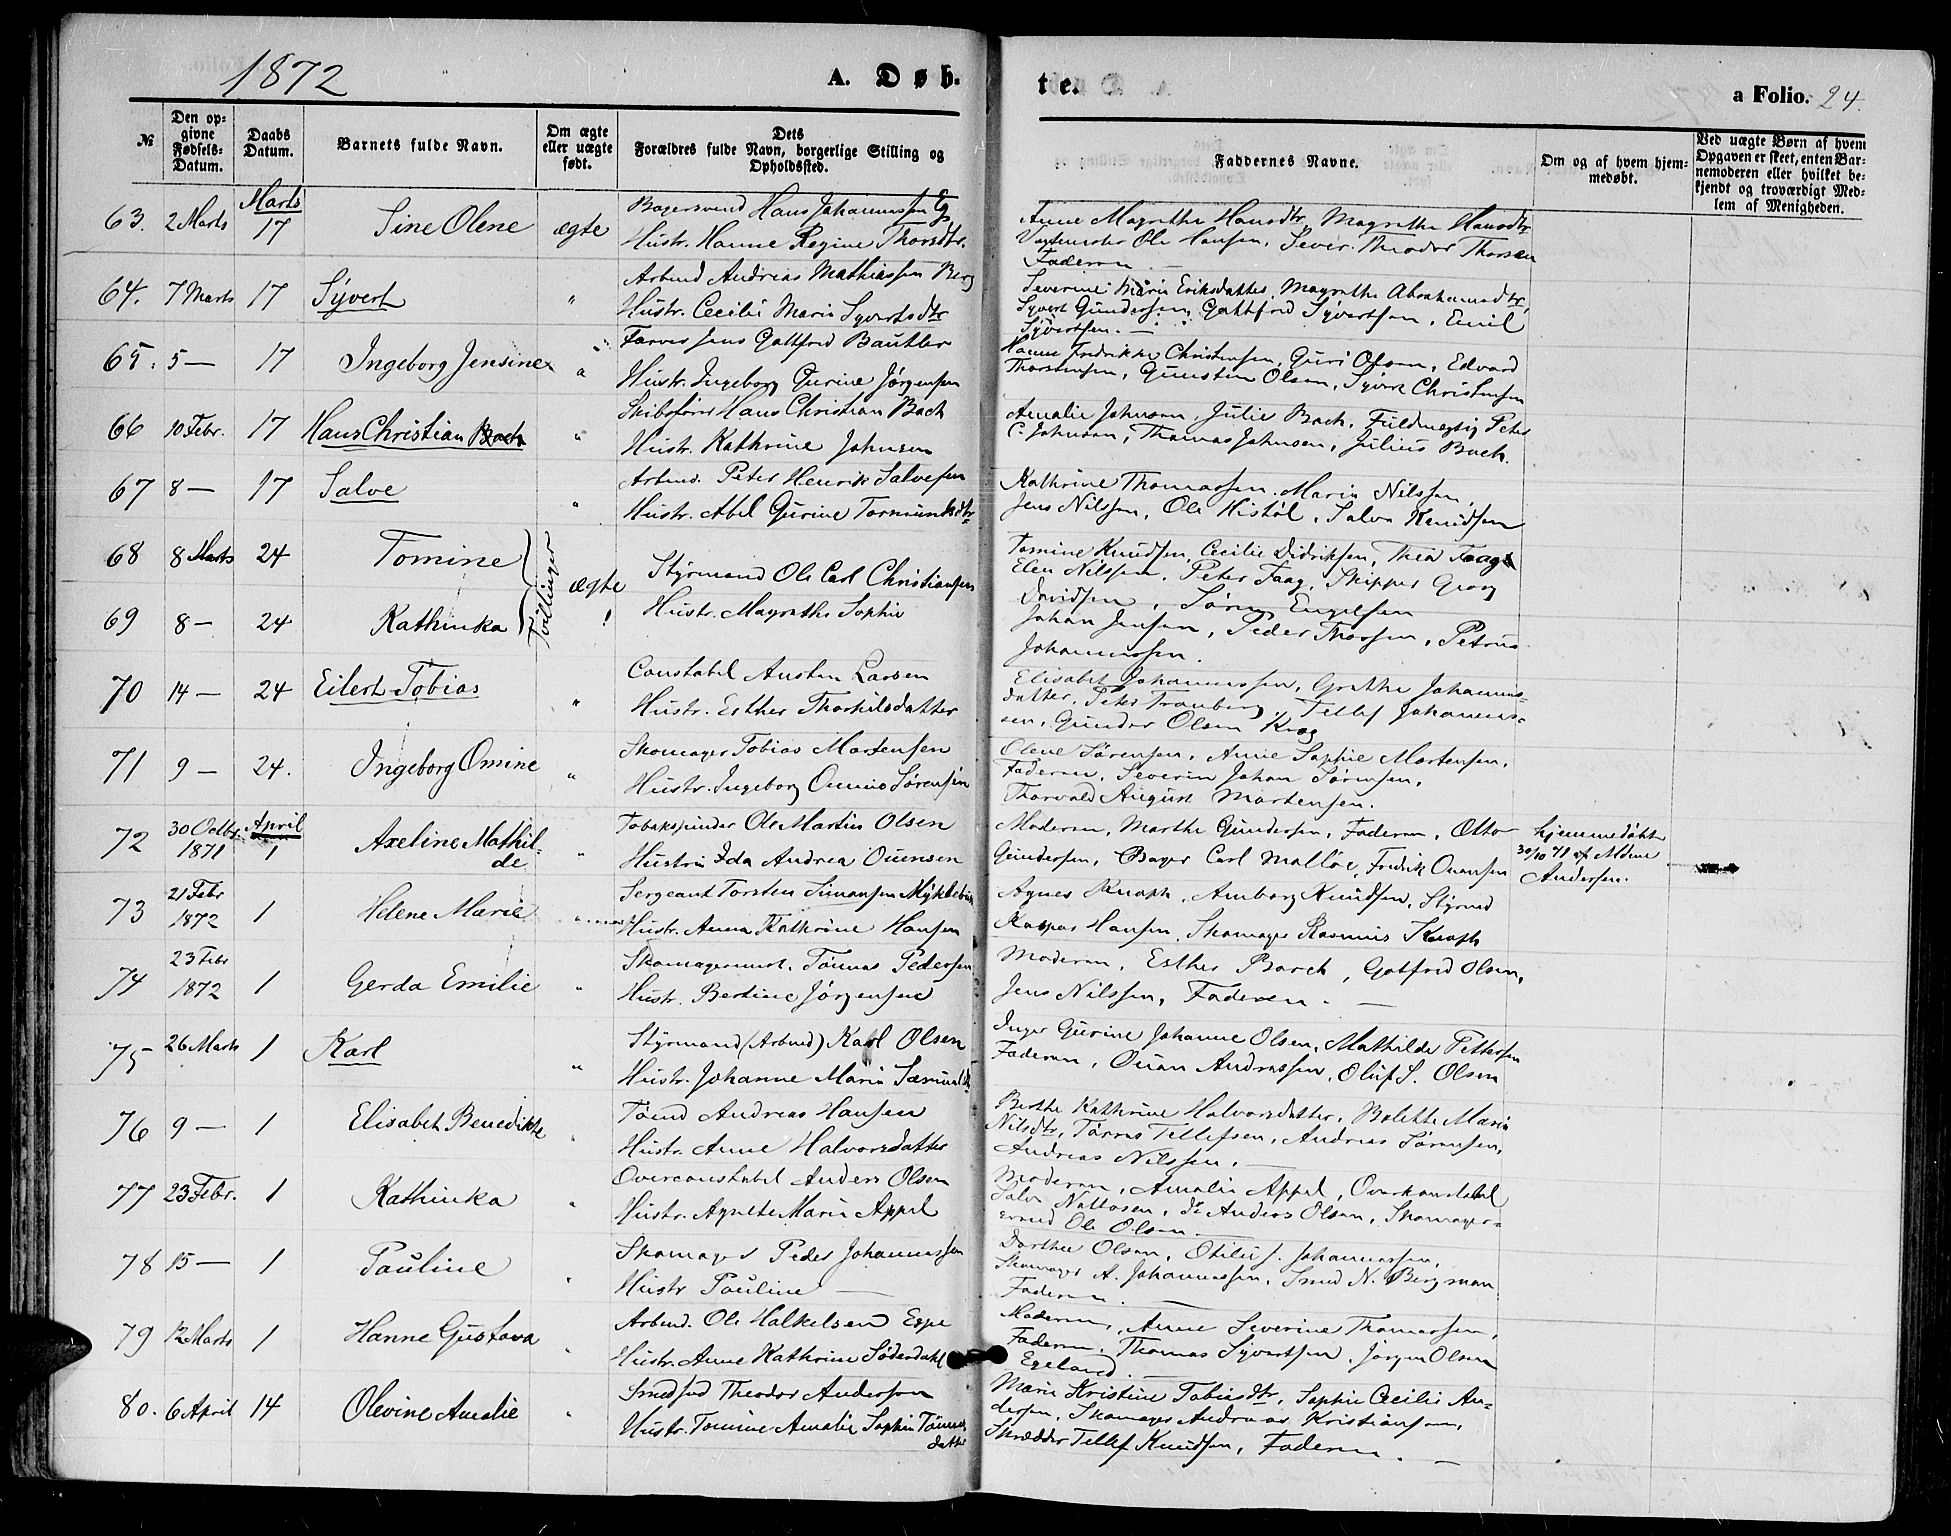 1872
A. Døb-
te.
a Folio. 24.
№
Den op-
givne
Fødsels-
Datum.
Daabs
Datum.
Barnets fulde Navn.
Om ægte
eller uægte
født.
Dets
Forældres fulde Navn, borgerlige Stilling og
Opholdssted.
Faddernes Navne.
Om og af hvem hjem-
medøbt.
Ved uægte Børn af hvem
Opgaven er skeet, enten Bar-
nemoderen eller hvilket be-
kjendt og troværdigt Med-
lem af Menigheden.
Marts
63. 2 Marts 17 Sine Olene ægte Bagersvend Hans Johannessen
Hustr. Hanne Regine Thorsdtr.
Anne Magrethe Hansdtr, Magrethe Hansdtr
Ole Hansen, Theodor Thorsen
Faderen
64. 7 Marts 17 Syvert " Arbmd Andreas Mathiassen Berg
Hustr. Cecilie Marie Syvertsdtr
Severine Marie Eriksdatter, Magrethe Abrahamsdtr,
Syvert Gundersen, Gottfred Syvertsen, Emil
Syvertsen. —
65. 5 — 17 Ingeborg Jensine " Farver Jens Gottfred Bautler
Hustr. Ingeborg Gurine Jørgensen
Hanne Fredrikke Christensen, Guri Olsen, Edvard
Thorstensen, Gunsten Olsen, Syvert Christensen
66 10 Febr. 17 Hans Christian Bach " Skibsfører Hans Christian Bach
Hustr. Kathrine Johnsen
Amalie Johnsen, Julie Bach, Fuldmægtig Peter
C. Johnsen, Thomas Johnsen, Julius Bach.
67 8 — 17 Salve " Arbmd. Peter Henrik Salvesen
Hustr. Abel Gurine Tormundsdtr
Kathrine Thomassen, Maria Nilssen,
Jens Nilssen, Ole Histøl, Salve Knudsen
68 8 Marts 24 Tomine Tvillinger ægte Styrmand Ole Carl Christiansen
Hustr. Magrethe Sophie
69 8 — 24 Kathinka
Tomine Knudsen, Cecilie Didriksen, Thea Faag
Elen Nilssen, Peter Faag, Skipper Georg
Davidsen, Søren Engelsen
Johan Jensen, Peder Thorsen, Petrus
Johannessen.
70 14 — 24 Eilert Tobias " Constabel Austen Larsen
Hustr. Esther Thorkildsdatter
Elisabet Johannessen, Grethe Johannes-
datter, Peter Tranberg, Tellef Johannes-
sen, Gunder Olsen Krag
71 9 — 24. Ingeborg Omine " Skomager Tobias Mortensen
Hustr. Ingeborg Omine Sørensen
Olene Sørensen, Anne Sophie Mortensen,
Faderen, Severin Johan Sørensen,
Thorvald August Mortensen.
April
72 30 Octbr. 1871 1 Axeline Mathil-
de " Tobakspinder Ole Martin Olsen
Hustru Ida Andrea Ouensen
Moderen, Marthe Gundersen, Faderen, Otto
Gundersen, Bager Carl Malløe, Fredrik Ouensen
hjemmedøbt
30/10 71 af Aldine
Andersen.
73 21 Febr 1872 1 Helene Marie " Sergeant Torsten Simonsen Myklebust
Hustr. Anna Kathrine Hansen
Agnes Knoph, Amborg Knudsen, Styrmd
Kaspar Hansen, Skomager Rasmus Knoph
74 23 Febr 1872 1 Gerda Emilie " Skomagermest. Tønnes Pedersen
Hustr. Bertine Jørgensen
Moderen, Esther Borch, Gotfred Olsen,
Jens Nilssen, Faderen. —
75 26 Marts 1 Karl " Styrmand (Arbmd) Karl Olsen
Hustr. Johanne Maria Samuelsdtr
Inger Gurine Johanne Olsen, Mathilde Pettersen
Faderen, Ouan Andreassen, Oluf S. Olsen
76 9 — 1 Elisabet Benedikte " Tømd Andreas Hansen
Hustr. Anne Halvorsdatter
Berthe Kathrine Halvorsdatter, Bolette Maria
Nilsdtr, Tørres Tellefsen, Andreas Sørensen,
Andreas Nilssen.
77 23 Febr. 1 Kathinka " Overconstabel Anders Olsen
Hustr. Agnethe Marie Appel
Moderen, Amalie Appel, Overkonstabel
Salve Nattosen, do Anders Olsen, Skomager-
svend Ole Olsen
78 15 — 1 Pauline " Skomager Peder Johannessen
Hustr Pauline —
Dorthea Olsen, Otilie J. Johannessen,
Skomager A. Johannessen, Smed N. Bergman
Faderen.
79 12 Marts 1 Hanne Gustava " Arbmd. Ole Halkelsen Espe
Hustr. Anne Kathrine Søderdahl
Moderen, Anne Severine Thomassen,
Faderen, Thomas Syvertsen, Jørgen Olsen
Egeland.
80. 6 April 14 Olevine Amalie " Smedsvd Theodor Andersen
Hustr. Tomine Amalie Sophie Tønnes-
datter
Marie Kristine Tobiasdtr, Sophie Cecilie An-
dersen, Skomager Andreas Kristiansen,
Skrædder Tellef Knudsen, Faderen. —